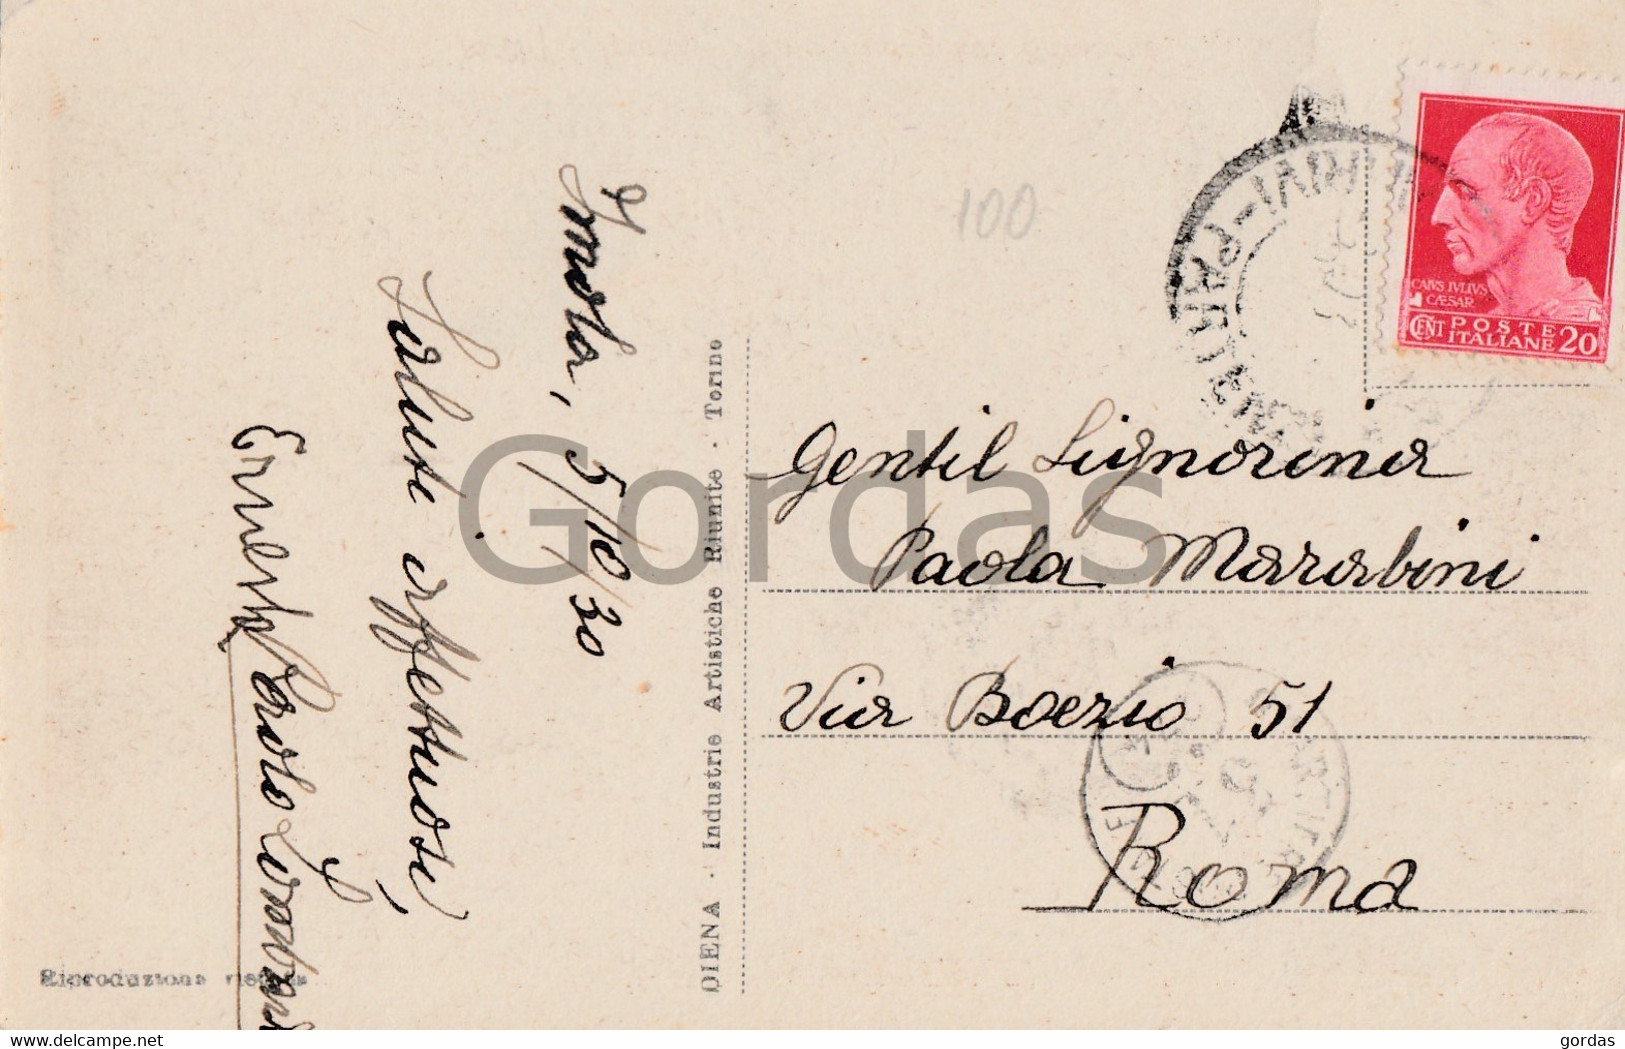 Imola, 5/10/30
Saluti affettuosi
Ernesto
Paolo
100
CAIVS IVLIVS
CÆSAR
CENT POSTE
ITALIANE 20
Gentil Signorina
Paola Marabini
Via Boezio 51
Roma
OIENA · Industrie Artistiche Riunite · Torino
Riproduzione
Gordas
delcampe.net
gordas